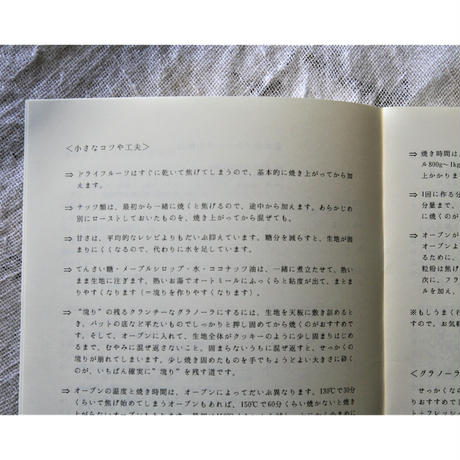 ＜小さなコツや工夫＞
⇒ ドライフルーツはすぐに乾いて焦げてしまうので、基本的に焼き上がってから加
えます。
⇒ ナッツ類は、最初から一緒に焼くと焦げるので、途中から加えます。あらかじめ
別にローストしておいたものを、焼き上がってから混ぜても。
⇒ 甘さは、平均的なレシピよりもだいぶ抑えています。糖分を減らすと、生地が固
まりにくくなるので、代わりに水を足しています。
⇒ てんさい糖・メープルシロップ・水・ココナッツ油は、一緒に煮立たせて、熱い
まま生地に注ぎます。熱いお湯でオートミールにふっくらと粘度が出て、まとま
りやすくなります（＝塊りを作りやすくなります）。
⇒ “塊り”の残るクランチーなグラノーラにするには、生地を天板に敷き詰めると
き、バットの底など平たいものでしっかりと押し固めてから焼くのがおすすめで
す。そして、オーブンに入れて、生地全体がクッキーのように少し固まりはじめ
るまで、むやみに混ぜ返さないこと。固まらないうちに混ぜ返すと、せっかくの
塊りが崩れてしまいます。少し焼き固めたものを手でちょうどよい大きさに砕く
のが、いちばん確実に“塊り”を残す道です。
⇒ オーブンの温度と焼き時間は、オーブンによってだいぶ異なります。130℃で30分
くらいで焦げ始めてしまうオーブンもあれば、150℃で60分くらい焼かないと焼き
⇒ 焼き時間は、
ル800g〜1kg
上かかります
⇒ 1回に作る分
分量まで、
に焼くのが
⇒ オーブンが
オーブンよ
るために、
粒粉は焦げ
次に、フラ
ルを加え、
※もしうまく行
すので、お気軽
＜グラノーラ
せっかくなの
ト＋フレッシ